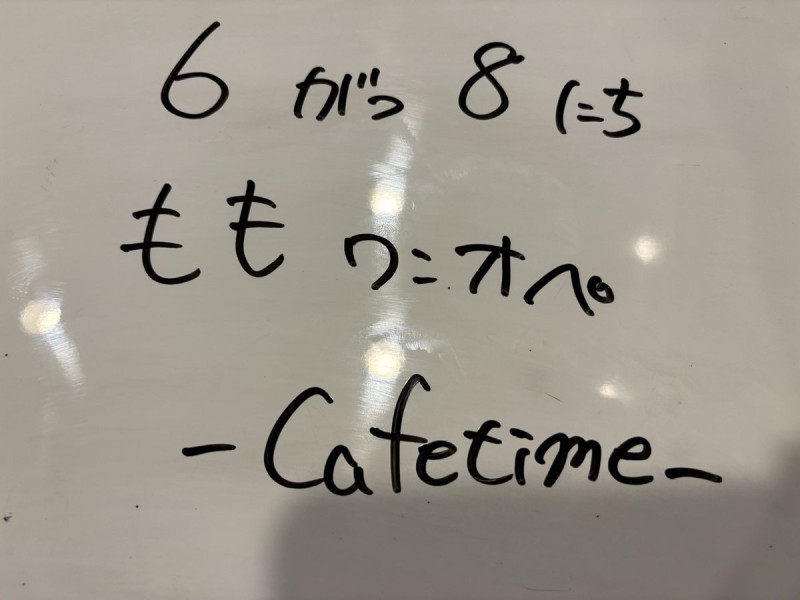 6がつ8にち
もも ワニオペ
-Cafetime-